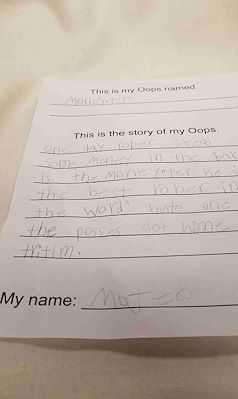 This is my Oops named
Moneyoter
This is the story of my Oops.
one day roper steal
some money in the bak
is the moneyoter. he is
the best roper in
the word! bute one
the posses got hime
tritim.
My name: Mateo